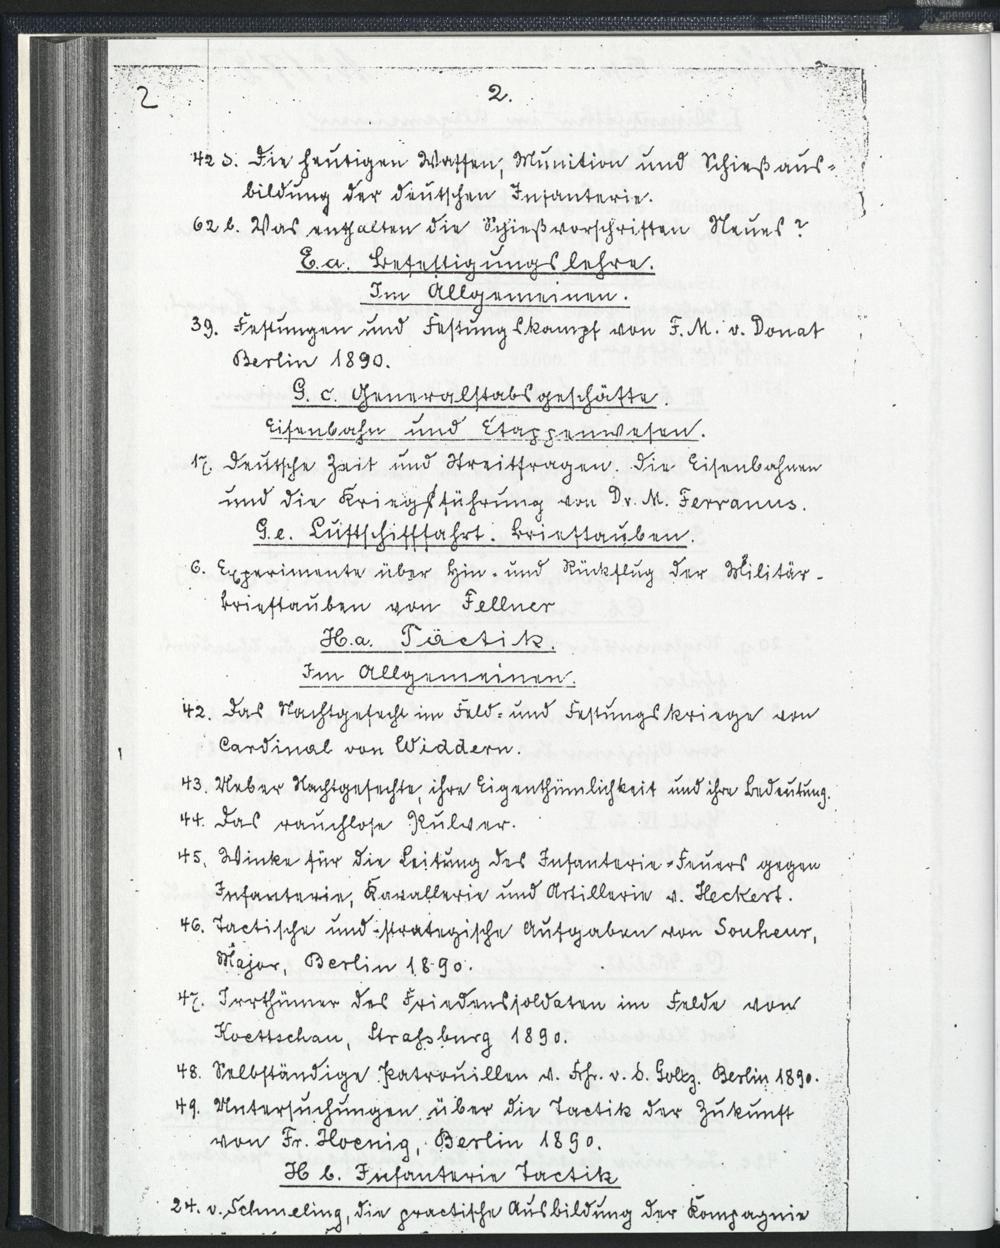 2
2.
42 d. Die heutigen Waffen, Munition und Schießaus-
bildung der deutschen Infanterie.
62 b. Was enthalten die Schießvorschriften Neues?
E.a. Befestigungslehre.
Im Allgemeinen.
39. Festungen und Festungskampf von F. M. v. Donat
Berlin 1890.
G. c. Generalstabsgeschäfte.
Eisenbahn und Etappenwesen.
17. Deutsche Zeit und Streitfragen. Die Eisenbahnen
und die Kriegsführung von Dr. M.
G.e. Luftschifffahrt. Brieftauben.
6. Experimente über Hin- und Rückflug der Militär-
brieftauben von Fellner
H.a. Tactik.
Im Allgemeinen.
42. Das Nachtgefecht im Feld- und Festungskriege von
Cardinal von Widdern.
43. Ueber Nachtgefechte, ihre Eigenthümlichkeit und ihre Bedeutung.
44. Das rauchlose Pulver.
45. Winke für die Leitung des Infanterie-Feuers gegen
Infanterie, Kavallerie und Artillerie v. Heckert.
46. Tactische und strategische Aufgaben von
Major, Berlin 1890.
47. Irrthümer des Friedenssoldaten im Felde von
Koettschau, Straßburg 1890.
48. Selbständige Patrouillen v. Frh. v. d. Goltz. Berlin 1890.
49. Untersuchungen über die Tactik der Zukunft
von Fr. Hoenig, Berlin 1890.
H b. Infanterie Tactik
24. v. Schmeling, die practische Ausbildung der Kompagnie